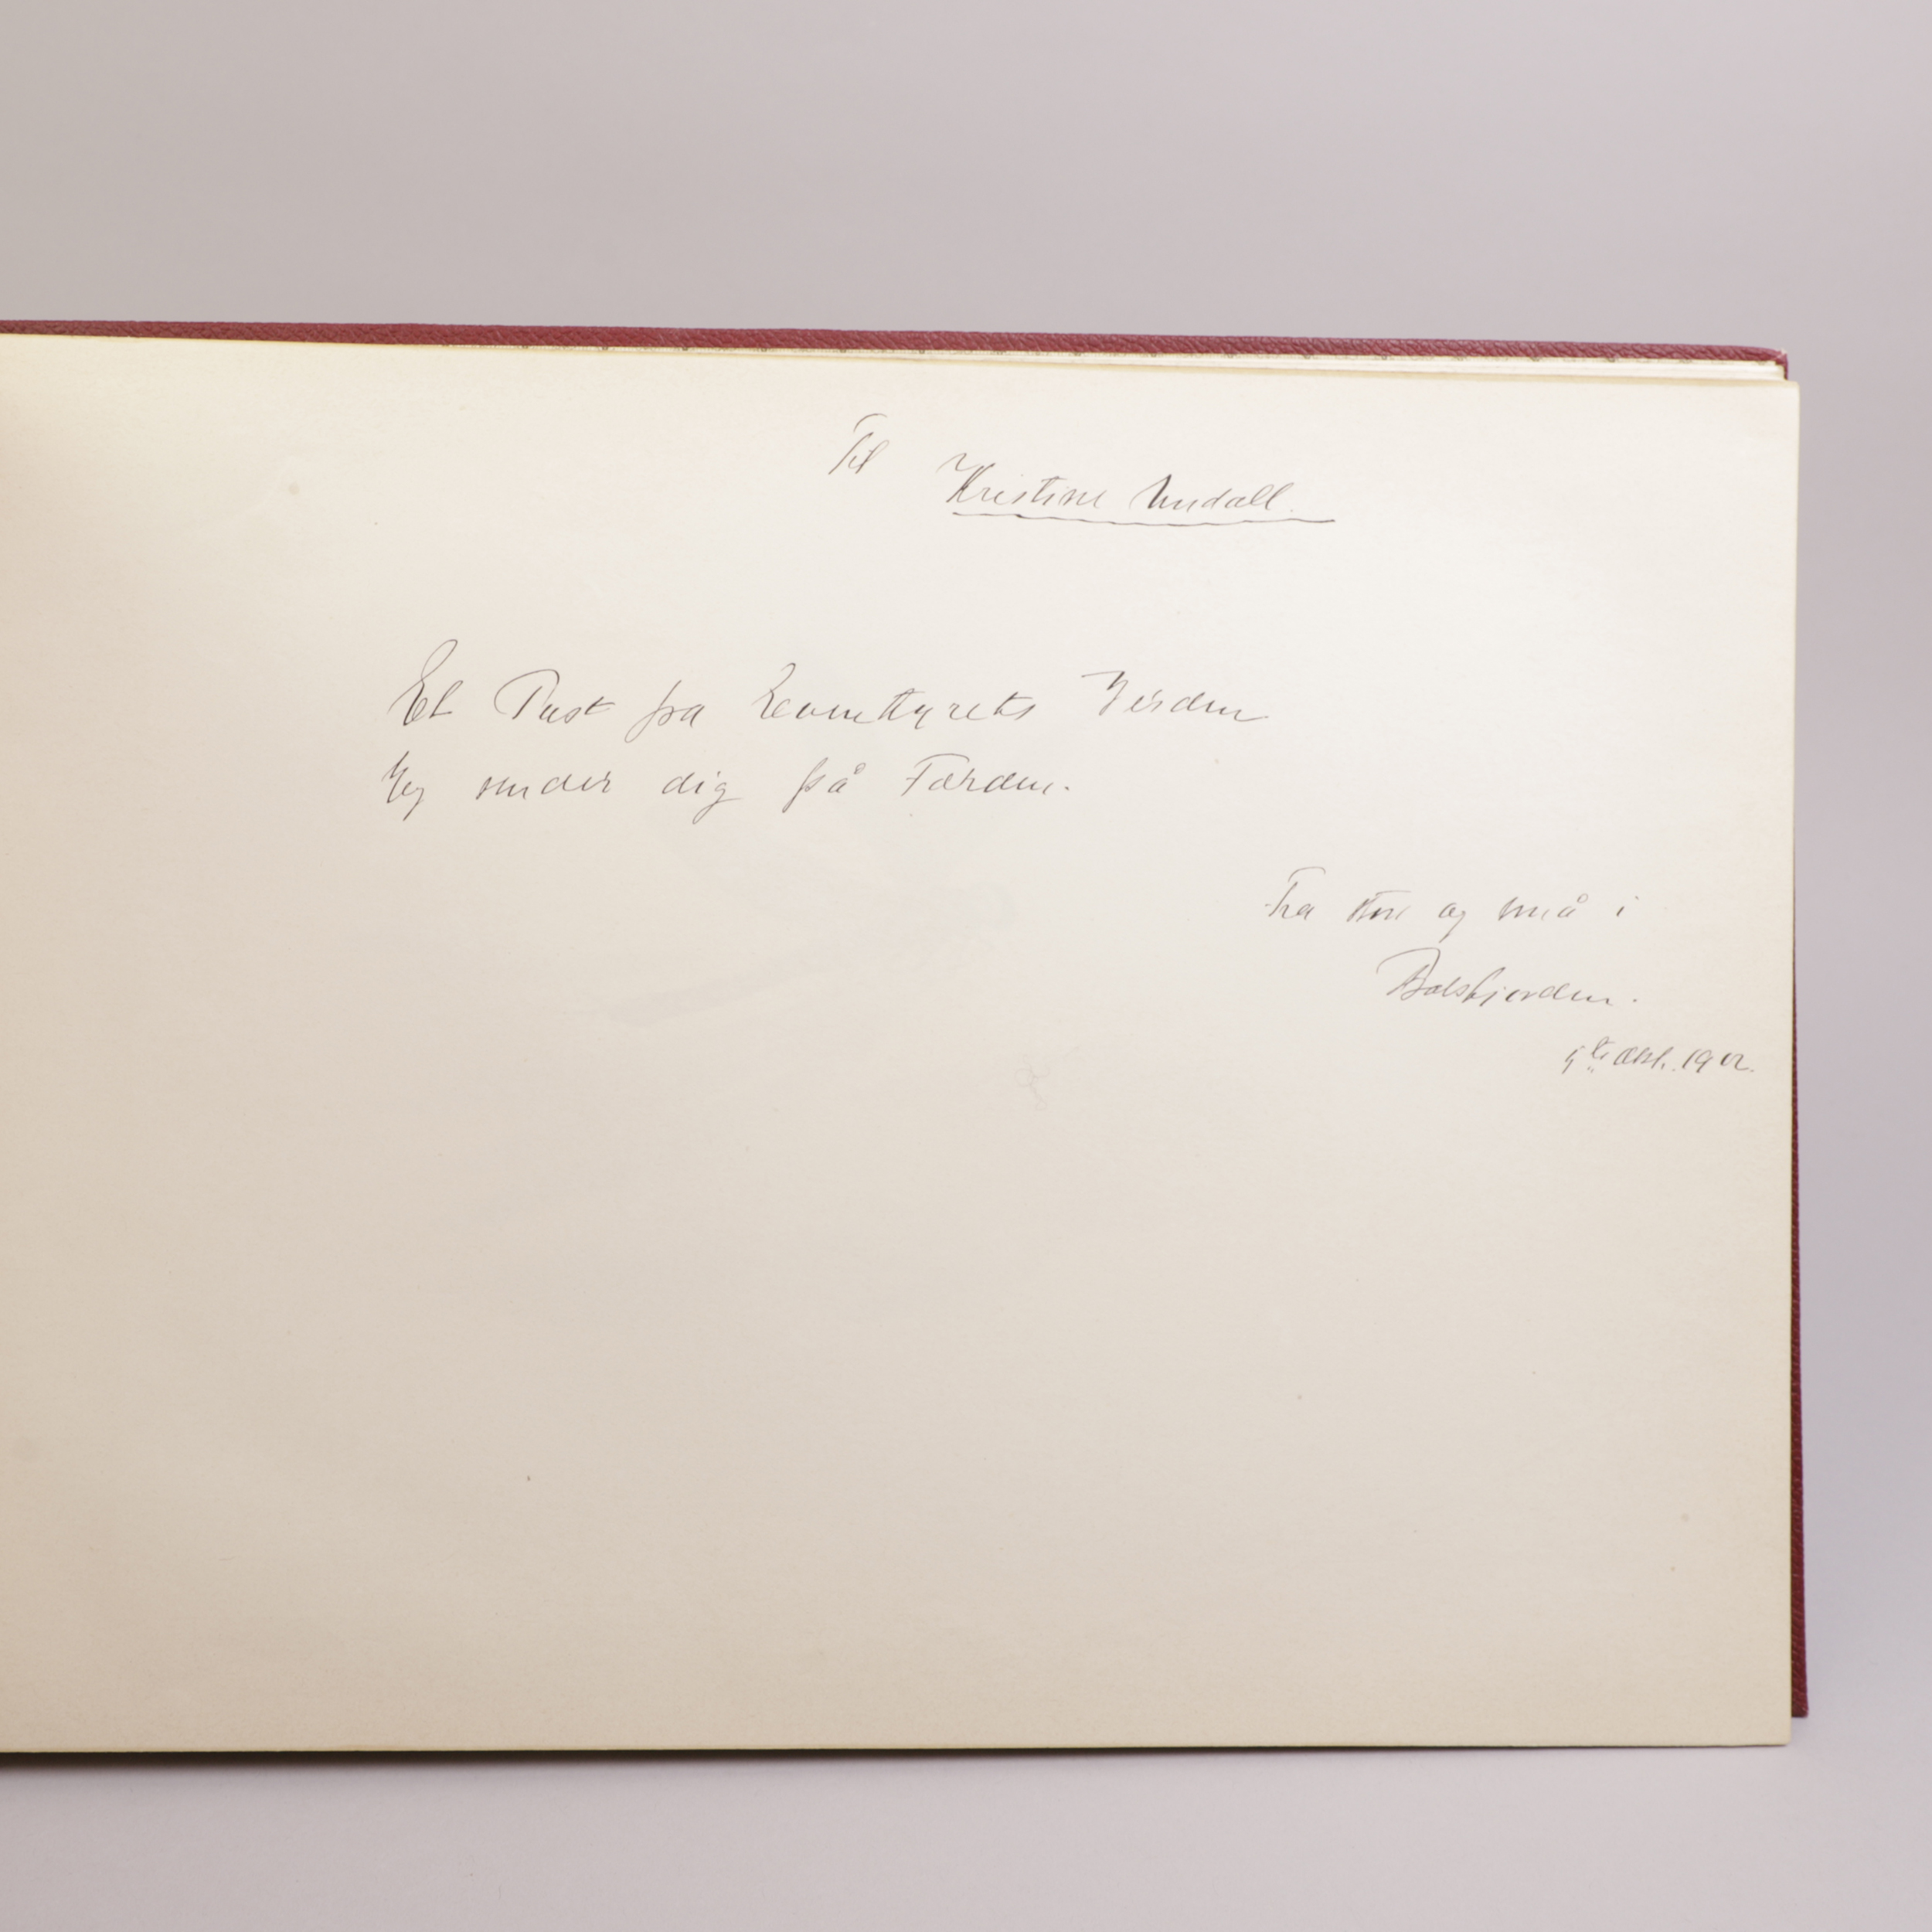 Til
Kristine Undall.
Et Pust fra Eventyrets Verden
Jeg sender dig på Færden.
Fra store og små i
Balsfjorden.
5te Okt. 1902.